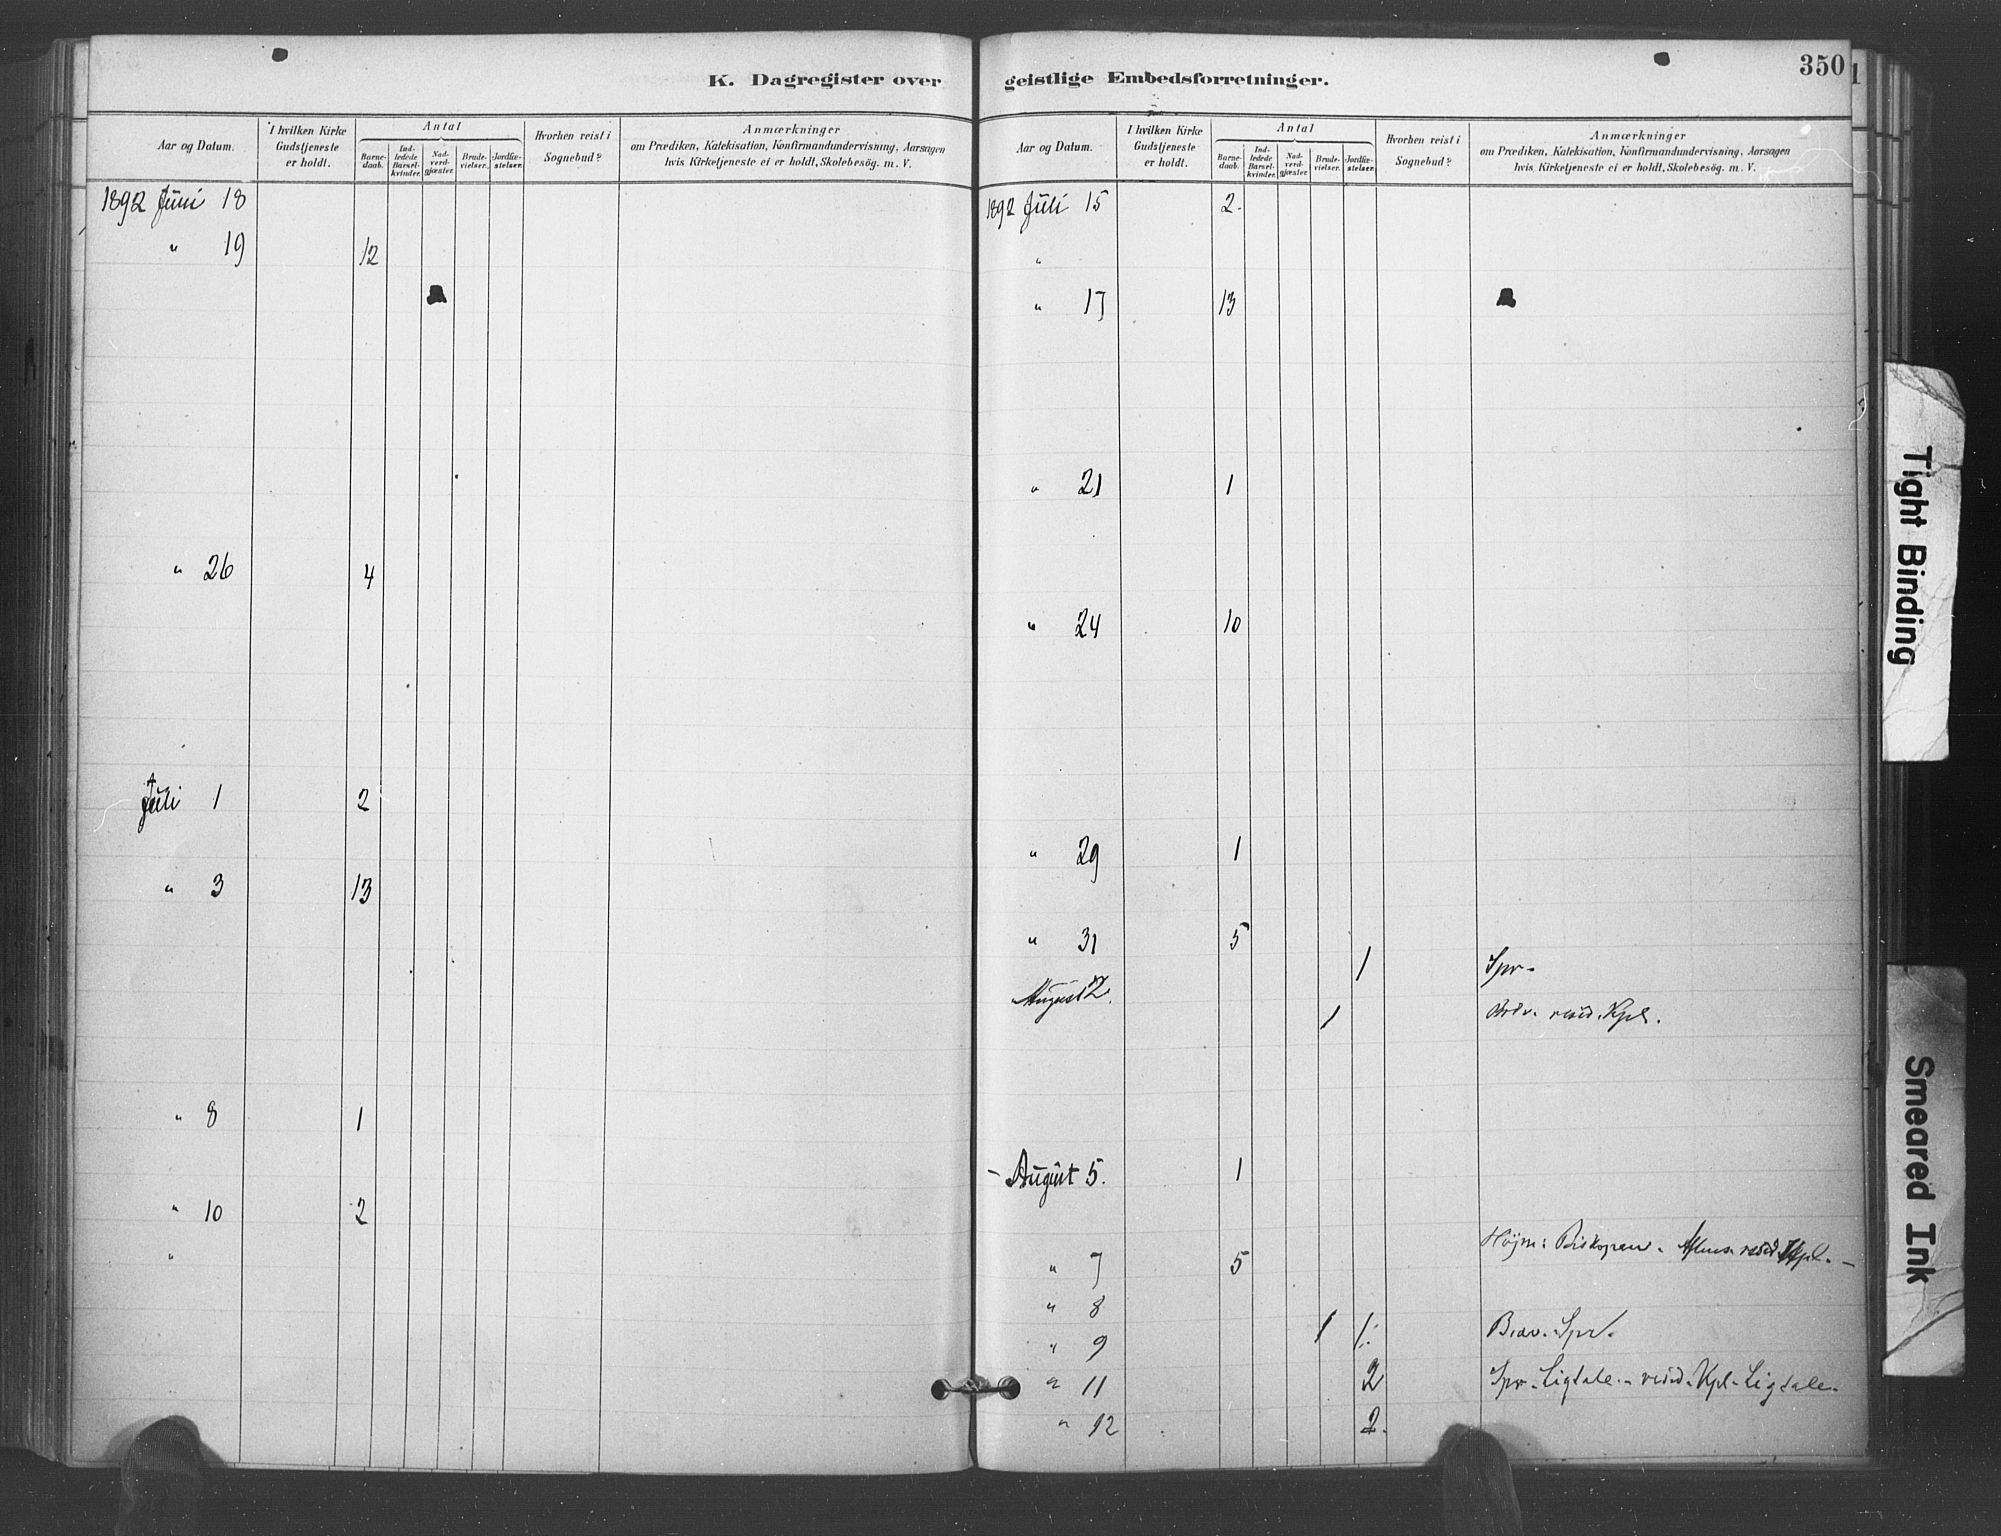 K. Dagregister over
Aar og Datum.
I hvilken Kirke
Gudstjeneste
er holdt.
Antal
Barne-
daab.
Ind-
ledede
Barsel-
kvinder.
Nad-
verd-
gjæster.
Brude-
vielser.
Jordfæ-
stelser.
Hvorhen reist i
Sognebud?
Anmærkninger
om Prædiken, Katekisation, Konfirmandundervisning, Aarsagen
hvis Kirketjeneste ei er holdt, Skolebesøg. m. V.
1892 Juni 18
" 19 12
" 26 4
Juli 1 2
" 3 13
" 8 1
" 10 2
"
geistlige Embedsforretninger.
350
1
Aar og Datum.
I hvilken Kirke
Gudstjeneste
er holdt.
Antal
Barne-
daab.
Ind-
ledede
Barsel-
kvinder.
Nad-
verd-
gjæster.
Brude-
vielser.
Jordfæ-
stelser.
Hvorhen reist i
Sognebud?
Anmærkninger
om Prædiken, Katekisation, Konfirmandundervisning, Aarsagen
hvis Kirketjeneste ei er holdt, Skolebesøg. m. V.
1892 Juli 15 2.
"
" 17 13
" 21 1
" 24 10
" 29 1
" 31 5
1 Spr.
August 2.
1 Brdv. resid. Kpl.
- August 5. 1
Højm: Biskopen. Aftens. resid. Kpl. -
" 7 5
" 8
" 9 1 1. Brdv. Spr.
" 11 2 Spr. Ligtale. resid. Kpl. Ligtale.
" 12 2.
Tight Binding
Smeared Ink